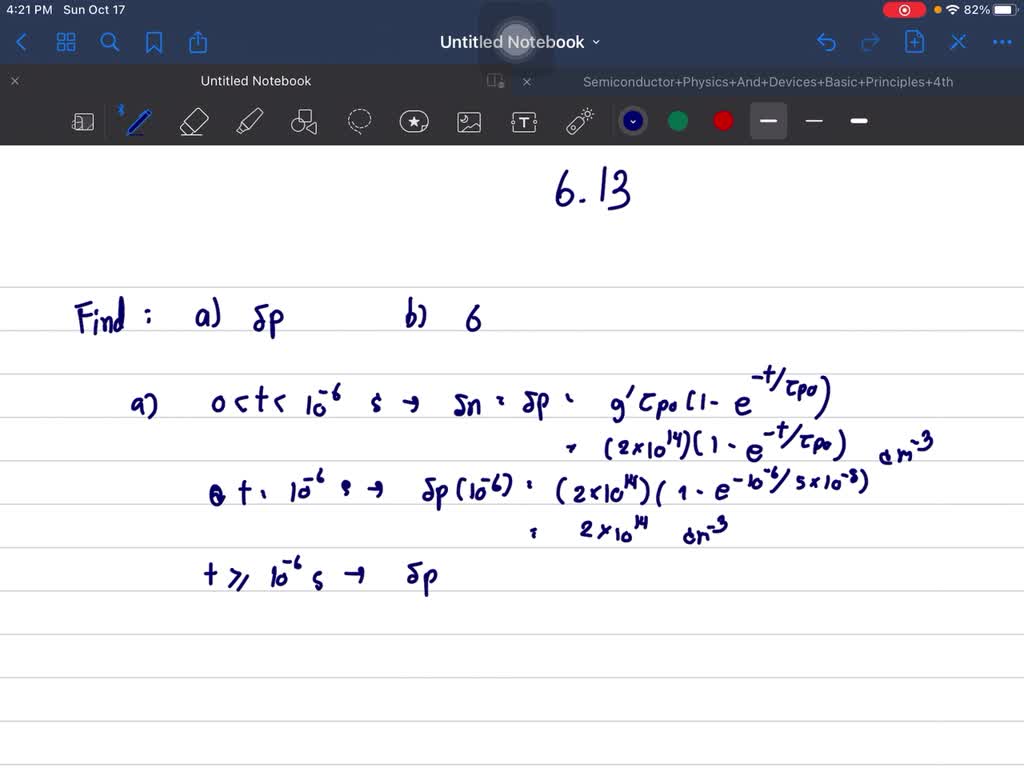 4:21 PM Sun Oct 17
82%
Untitled Notebook
Untitled Notebook
Semiconductor+Physics+And+Devices+Basic+Principles+4th
6.13
Find : a) δp b) 6
a) 0 < t < 10⁻⁶ s → δn = δp = g' τpo (1 - e^-t/τpo)
= (2×10¹⁴)(1 - e^-t/τpo) cm⁻³
@ t = 10⁻⁶ s → δp(10⁻⁶) = (2×10¹⁴)(1 - e^-10⁻⁶/5×10⁻⁸)
= 2×10¹⁴ cm⁻³
t ≥ 10⁻⁶ s → δp